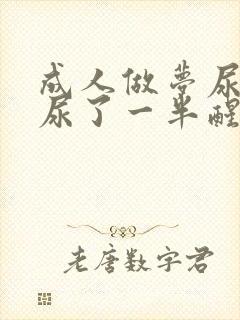 成人做夢尿
尿了一半醒
老唐数字君